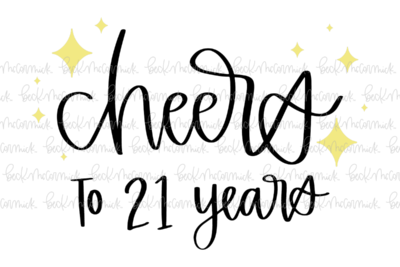 cheers
to 21 years